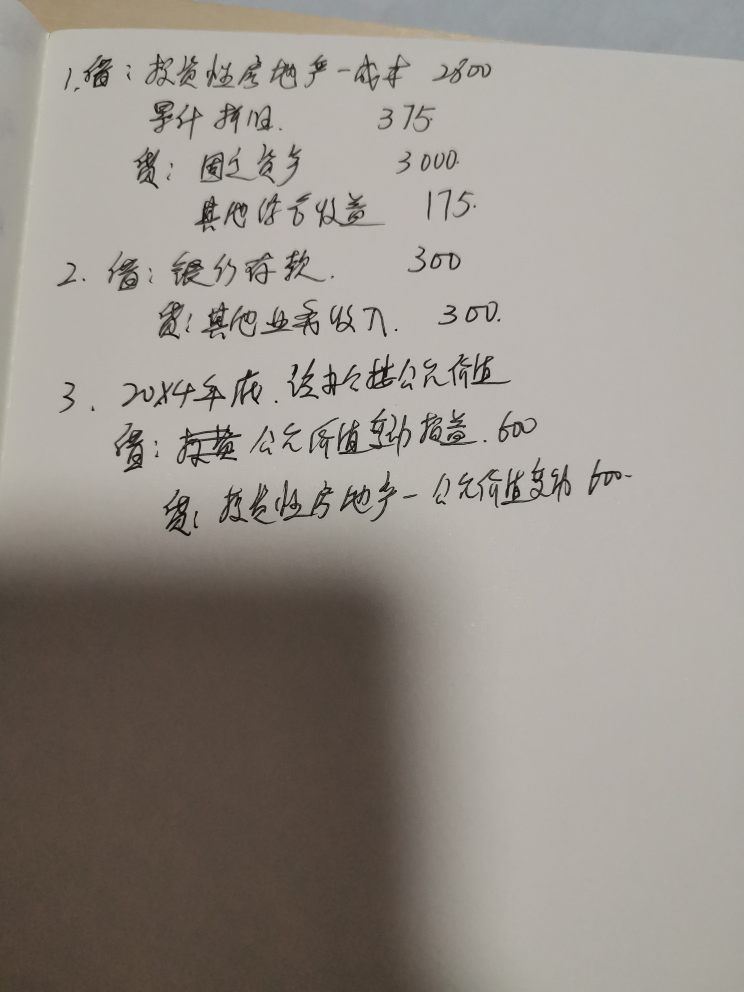 1.借：投资性房地产-成本 2800
累计折旧. 375
贷：固定资产 3000.
其他综合收益 175.
2. 借：银行存款. 300
贷：其他业务收入. 300.
3. 20X4年底.该办公楼公允价值
借：公允价值变动损益.600
贷：投资性房地产-公允价值变动 600.